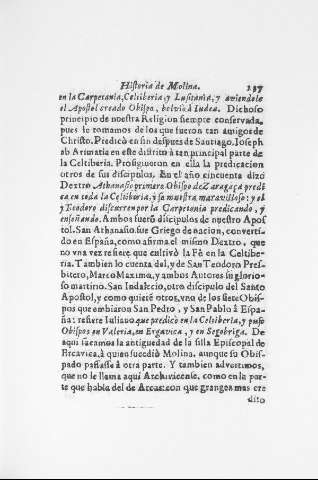 Historia de Molina. 137
en la Carpetania, Celtiberia, y Lusitania, y aviendole
el Apostol creado Obispo, bolviò à Iudea. Dichoso
principio de nuestra Religion siempre conservada,
pues le tomamos de los que fueron tan amigos de
Christo. Predicò en fin despues de Santiago, Ioseph
ab Arimatia en este distrito à tan principal parte de
la Celtiberia. Prosiguieron en ella la predicacion
otros de sus discipulos. En el año cincuenta dize
Dextro Athanasio primero Obispo de Zaragoça predi
ca en toda la Celtiberia, y se muestra maravilloso: y el
y Teodoro discurren por la Carpetania predicando, y
enseñando. Ambos fuerõ discipulos de nuestro Apos
tol. San Athanasio fue Griego de nacion, converti-
do en España, como afirma el mismo Dextro, que
no vna vez refiere que cultivò la Fè en la Celtibe-
ria. Tambien lo cuenta del, y de San Teodoro Pres-
bitero, Marco Maximo, y ambos Autores su glorio-
so martirio. San Indalecio, otro discipulo del Santo
Apostol, y como quierẽ otros, vno de los siete Obis-
pos que embiaron San Pedro, y San Pablo à Espa-
ña: refiere Iuliano que predicò en la Celtiberia, y puso
Obispos en Valeria, en Ergavica, y en Segobriga. De
aqui sacamos la antiguedad de la silla Episcopal de
Ercavica, à quien sucediò Molina, aunque su Obis-
pado passasse à otra parte. Y tambien advertimos,
que no le llama aqui Archivicense, como en la par-
te que habla del de Arcas: con que grangea mas cre
dito